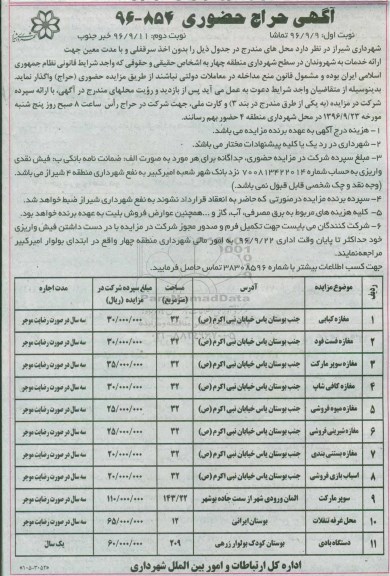 آگهی حراج حضوری ۸۵۴-۹۶
نوبت اول: ۹۶/۹/۹ تماشا نوبت دوم: ۹۶/۹/۱۱ خبر جنوب
شهرداری شیراز در نظر دارد محل های مندرج در جدول ذیل را بدون اخذ سرقفلی و با مدت معین جهت
ارائه خدمات به شهروندان در سطح شهرداری منطقه چهار به اشخاص حقیقی و حقوقی که واجد شرایط قانونی نظام جمهوری
اسلامی ایران بوده و مشمول قانون منع مداخله در معاملات دولتی نباشند از طریق مزایده حضوری (حراج) واگذار نماید.
بدینوسیله از متقاضیان واجد شرایط دعوت به عمل می آید پس از بازدید و رؤیت محلهای مندرج در آگهی، با ارائه سپرده
شرکت در مزایده (به یکی از طرق مندرج در بند ۳) و کارت ملی، جهت شرکت در حراج رأس ساعت ۸ صبح روز پنج شنبه
مورخه ۱۳۹۶/۹/۲۳ در محل شهرداری منطقه ۴ حضور بهم رسانند.
۱- هزینه درج آگهی به عهده برنده مزایده می باشد.
۲- شهرداری در رد یک یا کلیه پیشنهادات مختار می باشد.
۳- مبلغ سپرده شرکت در مزایده حضوری، جداگانه برای هر مورد به صورت الف: ضمانت نامه بانکی ب: فیش نقدی
واریزی به حساب شماره ۷۰۰۸۱۳۴۲۲۰۱۴ نزد بانک شهر شعبه امیرکبیر به نفع شهرداری منطقه ۴ شیراز می باشد.
(وجه نقد و چک شخصی قابل قبول نمی باشد.)
۴- سپرده برنده مزایده درصورتی که حاضر به انعقاد قرارداد نشوند به نفع شهرداری شیراز ضبط خواهد شد.
۵- کلیه هزینه های مربوط به برق مصرفی، آب، گاز و... همچنین عوارض فروش بلیت به عهده برنده خواهد بود.
۶- شرکت کنندگان می بایست جهت تکمیل فرم و صدور مجوز شرکت در مزایده با در دست داشتن فیش واریزی
خود حداکثر تا پایان وقت اداری ۹۶/۹/۲۲ به امور مالی شهرداری منطقه چهار واقع در ابتدای بولوار امیرکبیر
مراجعه نمایند.
جهت کسب اطلاعات بیشتر با شماره ۳۸۳۰۸۵۹۶ تماس حاصل فرمایید.
ردیف موضوع مزایده آدرس مساحت (مترمربع) مبلغ سپرده شرکت در مزایده (ریال) مدت اجاره
۱ مغازه کبابی جنب بوستان یاس خیابان نبی اکرم (ص) ۳۲ ۳۰/۰۰۰/۰۰۰ سه سال در صورت رضایت موجر
۲ مغازه فست فود جنب بوستان یاس خیابان نبی اکرم (ص) ۳۲ ۳۰/۰۰۰/۰۰۰ سه سال در صورت رضایت موجر
۳ مغازه سوپر مارکت جنب بوستان یاس خیابان نبی اکرم (ص) ۳۲ ۳۵/۰۰۰/۰۰۰ سه سال در صورت رضایت موجر
۴ مغازه کافی شاپ جنب بوستان یاس خیابان نبی اکرم (ص) ۳۲ ۳۰/۰۰۰/۰۰۰ سه سال در صورت رضایت موجر
۵ مغازه میوه فروشی جنب بوستان یاس خیابان نبی اکرم (ص) ۳۲ ۲۵/۰۰۰/۰۰۰ سه سال در صورت رضایت موجر
۶ مغازه شیرینی فروشی جنب بوستان یاس خیابان نبی اکرم (ص) ۳۲ ۲۵/۰۰۰/۰۰۰ سه سال در صورت رضایت موجر
۷ مغازه بستنی بندی جنب بوستان یاس خیابان نبی اکرم (ص) ۳۲ ۲۰/۰۰۰/۰۰۰ سه سال در صورت رضایت موجر
۸ اسباب بازی فروشی جنب بوستان یاس خیابان نبی اکرم (ص) ۳۲ ۲۰/۰۰۰/۰۰۰ سه سال در صورت رضایت موجر
۹ سوپر مارکت المان ورودی شهر از سمت جاده بوشهر ۱۴۳/۲۲ ۱۱۰/۰۰۰/۰۰۰ سه سال در صورت رضایت موجر
۱۰ محل غرفه تنقلات بوستان ایرانی ۱۲ ۶۵/۰۰۰/۰۰۰ سه سال در صورت رضایت موجر
۱۱ دستگاه بادی بوستان کودک بولوار زرهی ۲۰۹ ۶۰/۰۰۰/۰۰۰ یک سال
اداره کل ارتباطات و امور بین الملل شهرداری